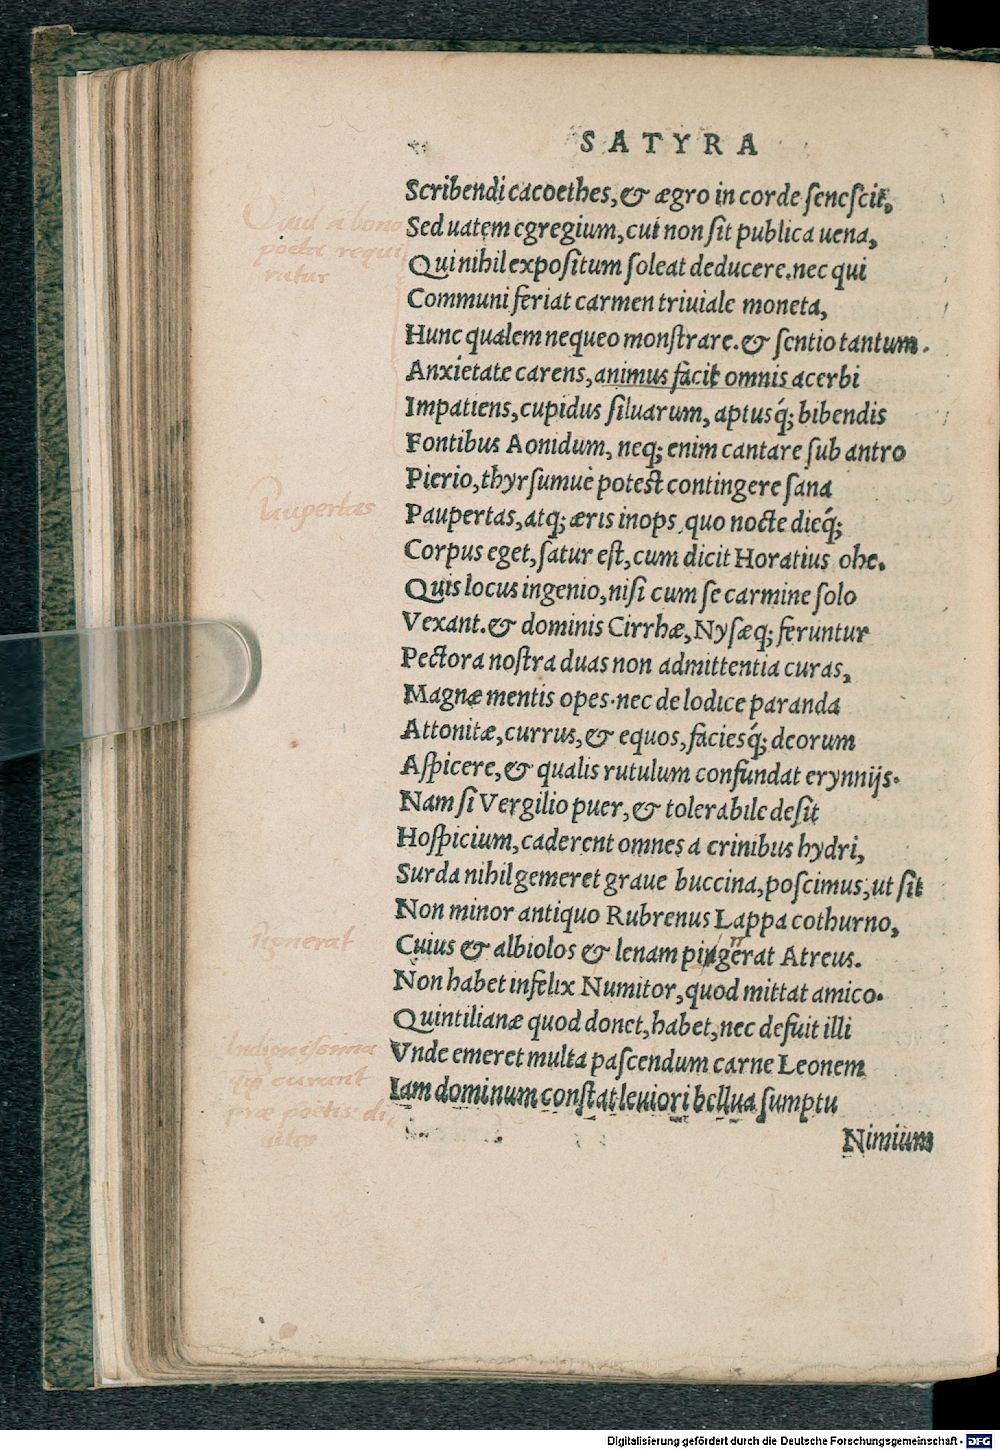 SATYRA
Scribendi cacoethes, & ægro in corde senescit,
Sed uatem egregium, cui non sit publica uena,
Qui nihil expositum soleat deducere. nec qui
Communi feriat carmen triuiale moneta,
Hunc qualem nequeo monstrare. & sentio tantum.
Anxietate carens, animus facit omnis acerbi
Impatiens, cupidus siluarum, aptusq́; bibendis
Fontibus Aonidum, neq; enim cantare sub antro
Pierio, thyrsumue potest contingere sana
Paupertas, atq; æris inops, quo nocte dieq́;
Corpus eget, satur est, cum dicit Horatius ohe.
Quis locus ingenio, nisi cum se carmine solo
Vexant. & dominis Cirrhæ, Nysæq; feruntur
Pectora nostra duas non admittentia curas,
Magnæ mentis opes. nec de lodice paranda
Attonitæ, currus, & equos, faciesq́; deorum
Aspicere, & qualis rutulum confundat erynnijs.
Nam si Vergilio puer, & tolerabile desit
Hospicium, caderent omnes a crinibus hydri,
Surda nihil gemeret graue buccina, poscimus, ut sit
Non minor antiquo Rubrenus Lappa cothurno,
Cuius & albiolos & lenam pingerat Atreus.
Non habet infelix Numitor, quod mittat amico.
Quintilianæ quod donet, habet, nec defuit illi
Vnde emeret multa pascendum carne Leonem
Iam dominum constat leuiori bellua sumptu
Nimium
Quid a bono
poeta requi
ritur
Paupertas
Pignerat
Indignissima
curant
præ poetis di
uites
Digitalisierung gefördert durch die Deutsche Forschungsgemeinschaft - DFG